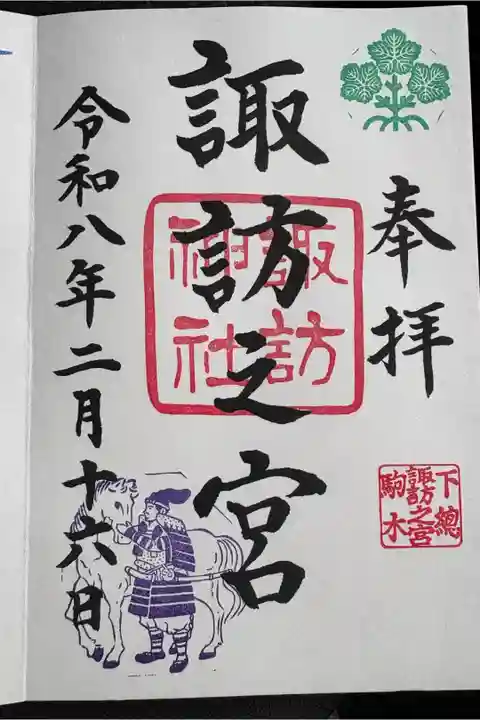 奉拝
諏訪之宮
諏訪
神社
下總
諏訪之宮
駒木
令和八年二月十六日